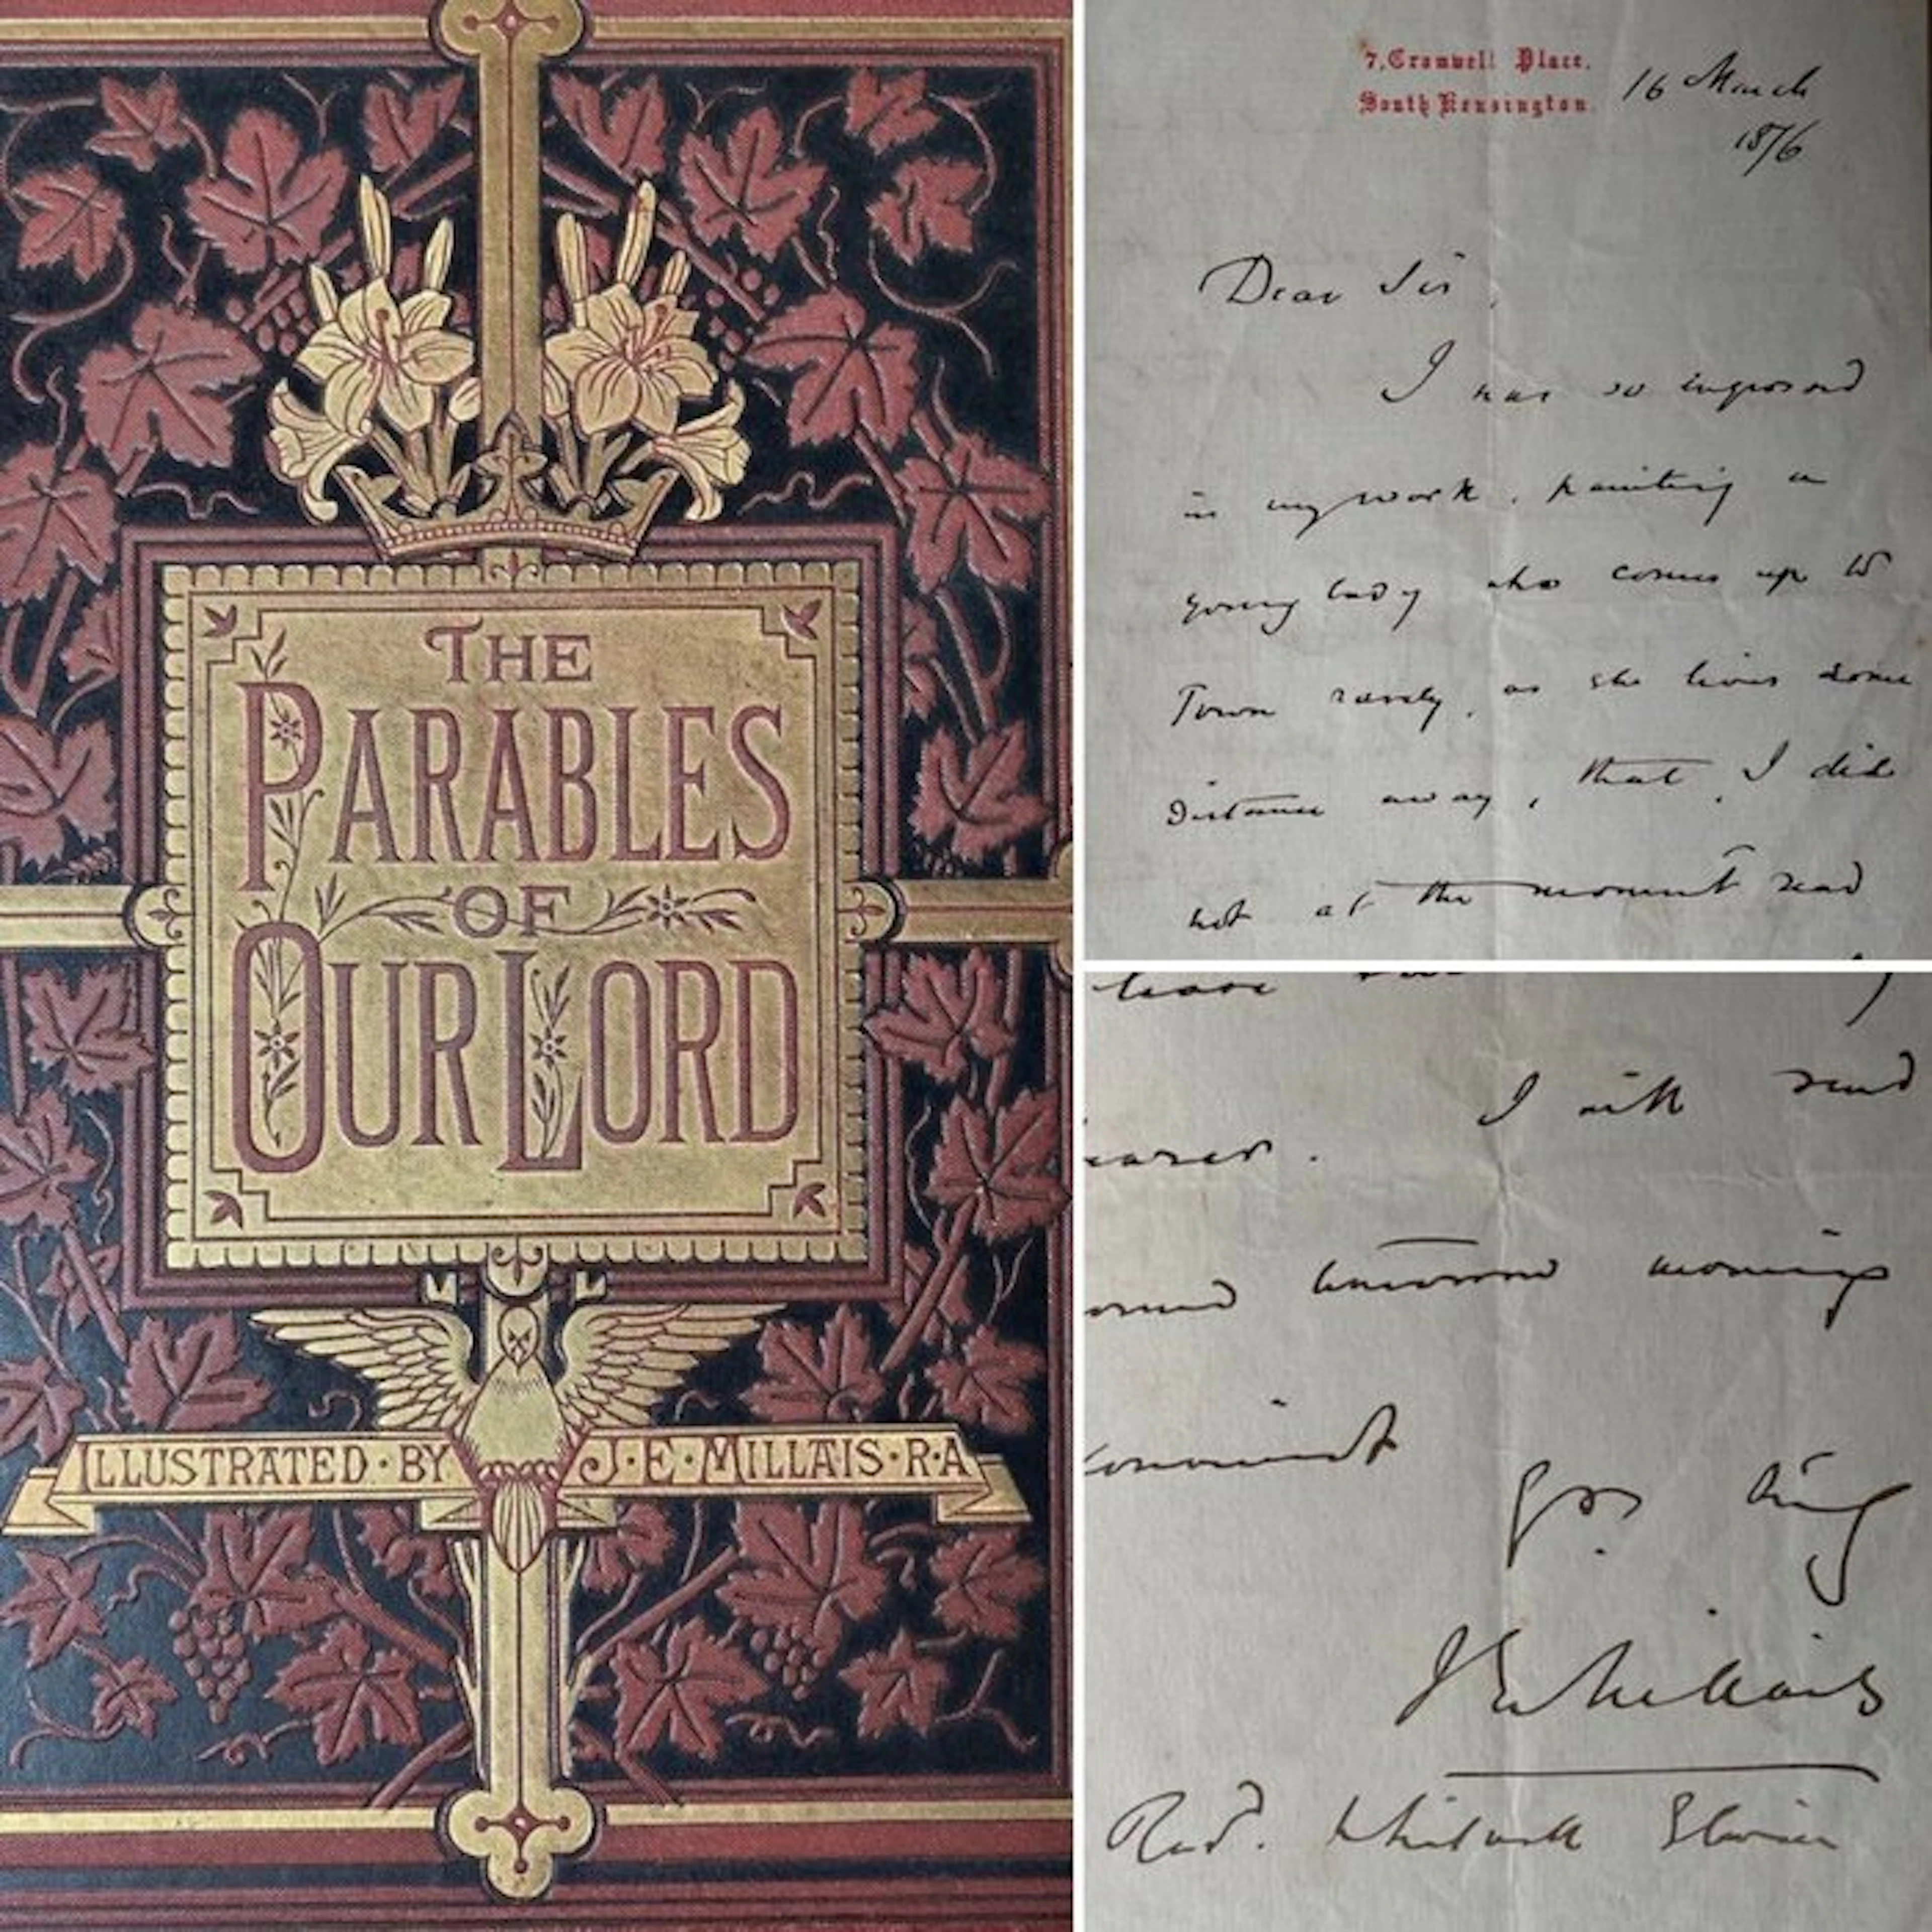 THE
PARABLES
OF
OUR LORD
ILLUSTRATED · BY J · E · MILLAIS · R · A
7, Cromwell Place,
South Kensington.
16 March
1876
Dear Sir,
I was so engrossed
in my work, painting a
young lady who comes up to
Town rarely, as she lives some
distance away, that, I did
not at the moment read
leave
I will send
tomorrow morning
J E Millais
Revd. Whitwell Elwin